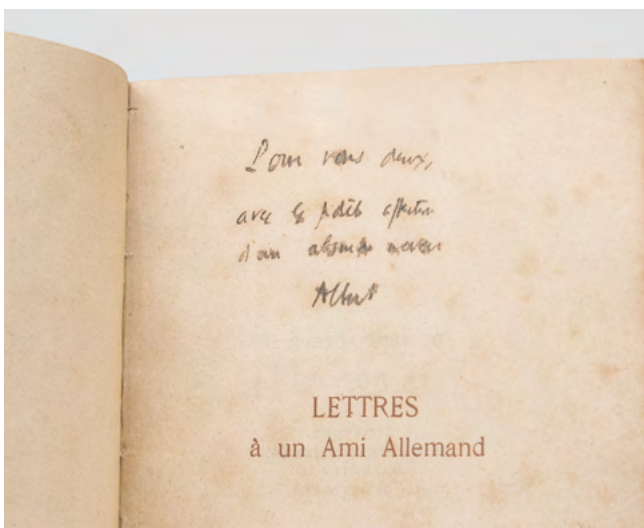 Pour vous deux,
avec la fidèle affection
d'un absurde neveu
Albert
LETTRES
à un Ami Allemand